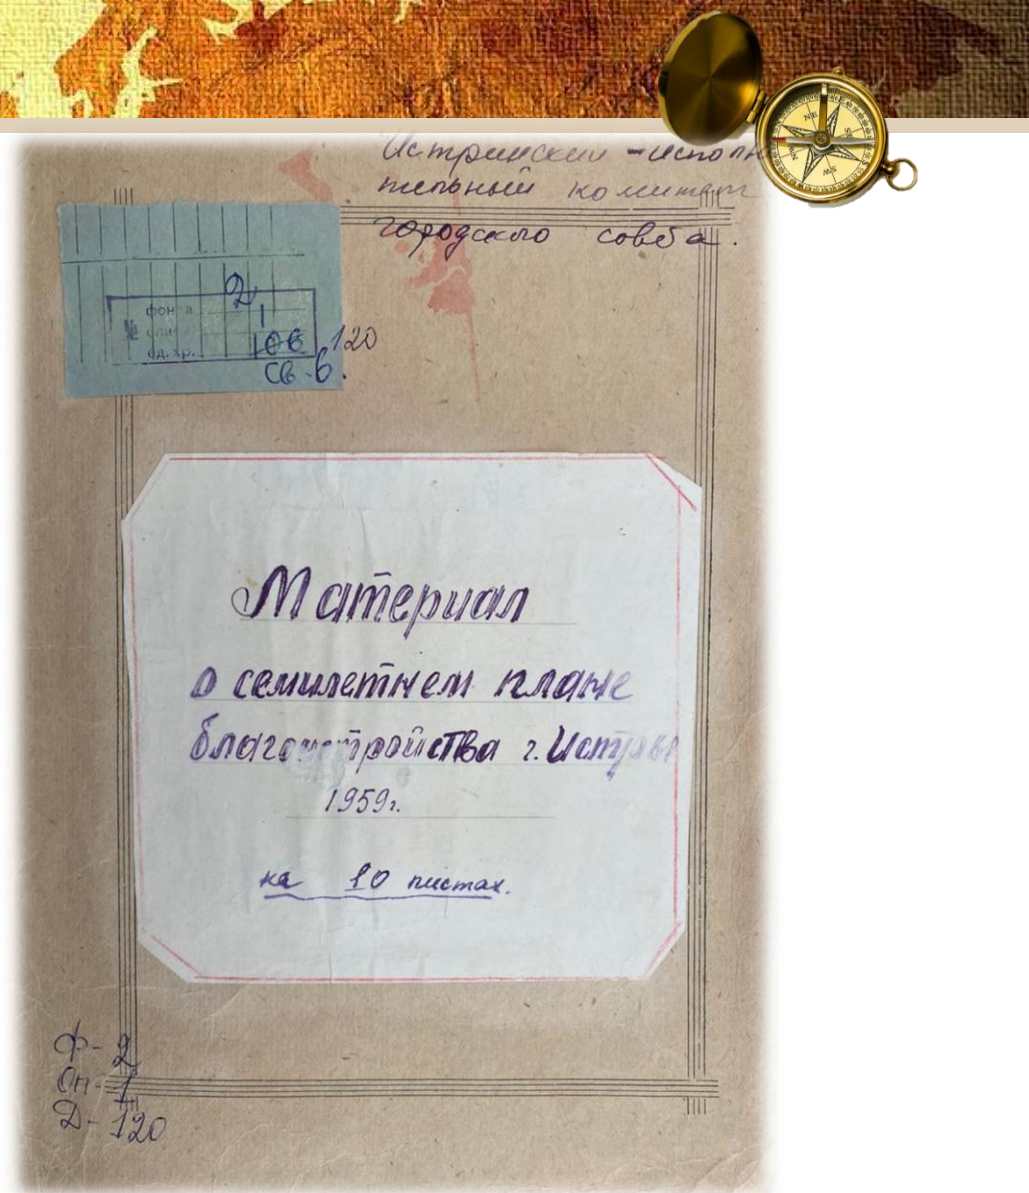 Истринский - исполн
тельный комитет
городского совета.
2
фонда
1
№ описи
ед. хр. 106 120
св. 6.
Материал
о семилетнем плане
благоустройства г. Истры
1959г.
на 10 листах.
Ф- 2
Оп- 1
Д- 120